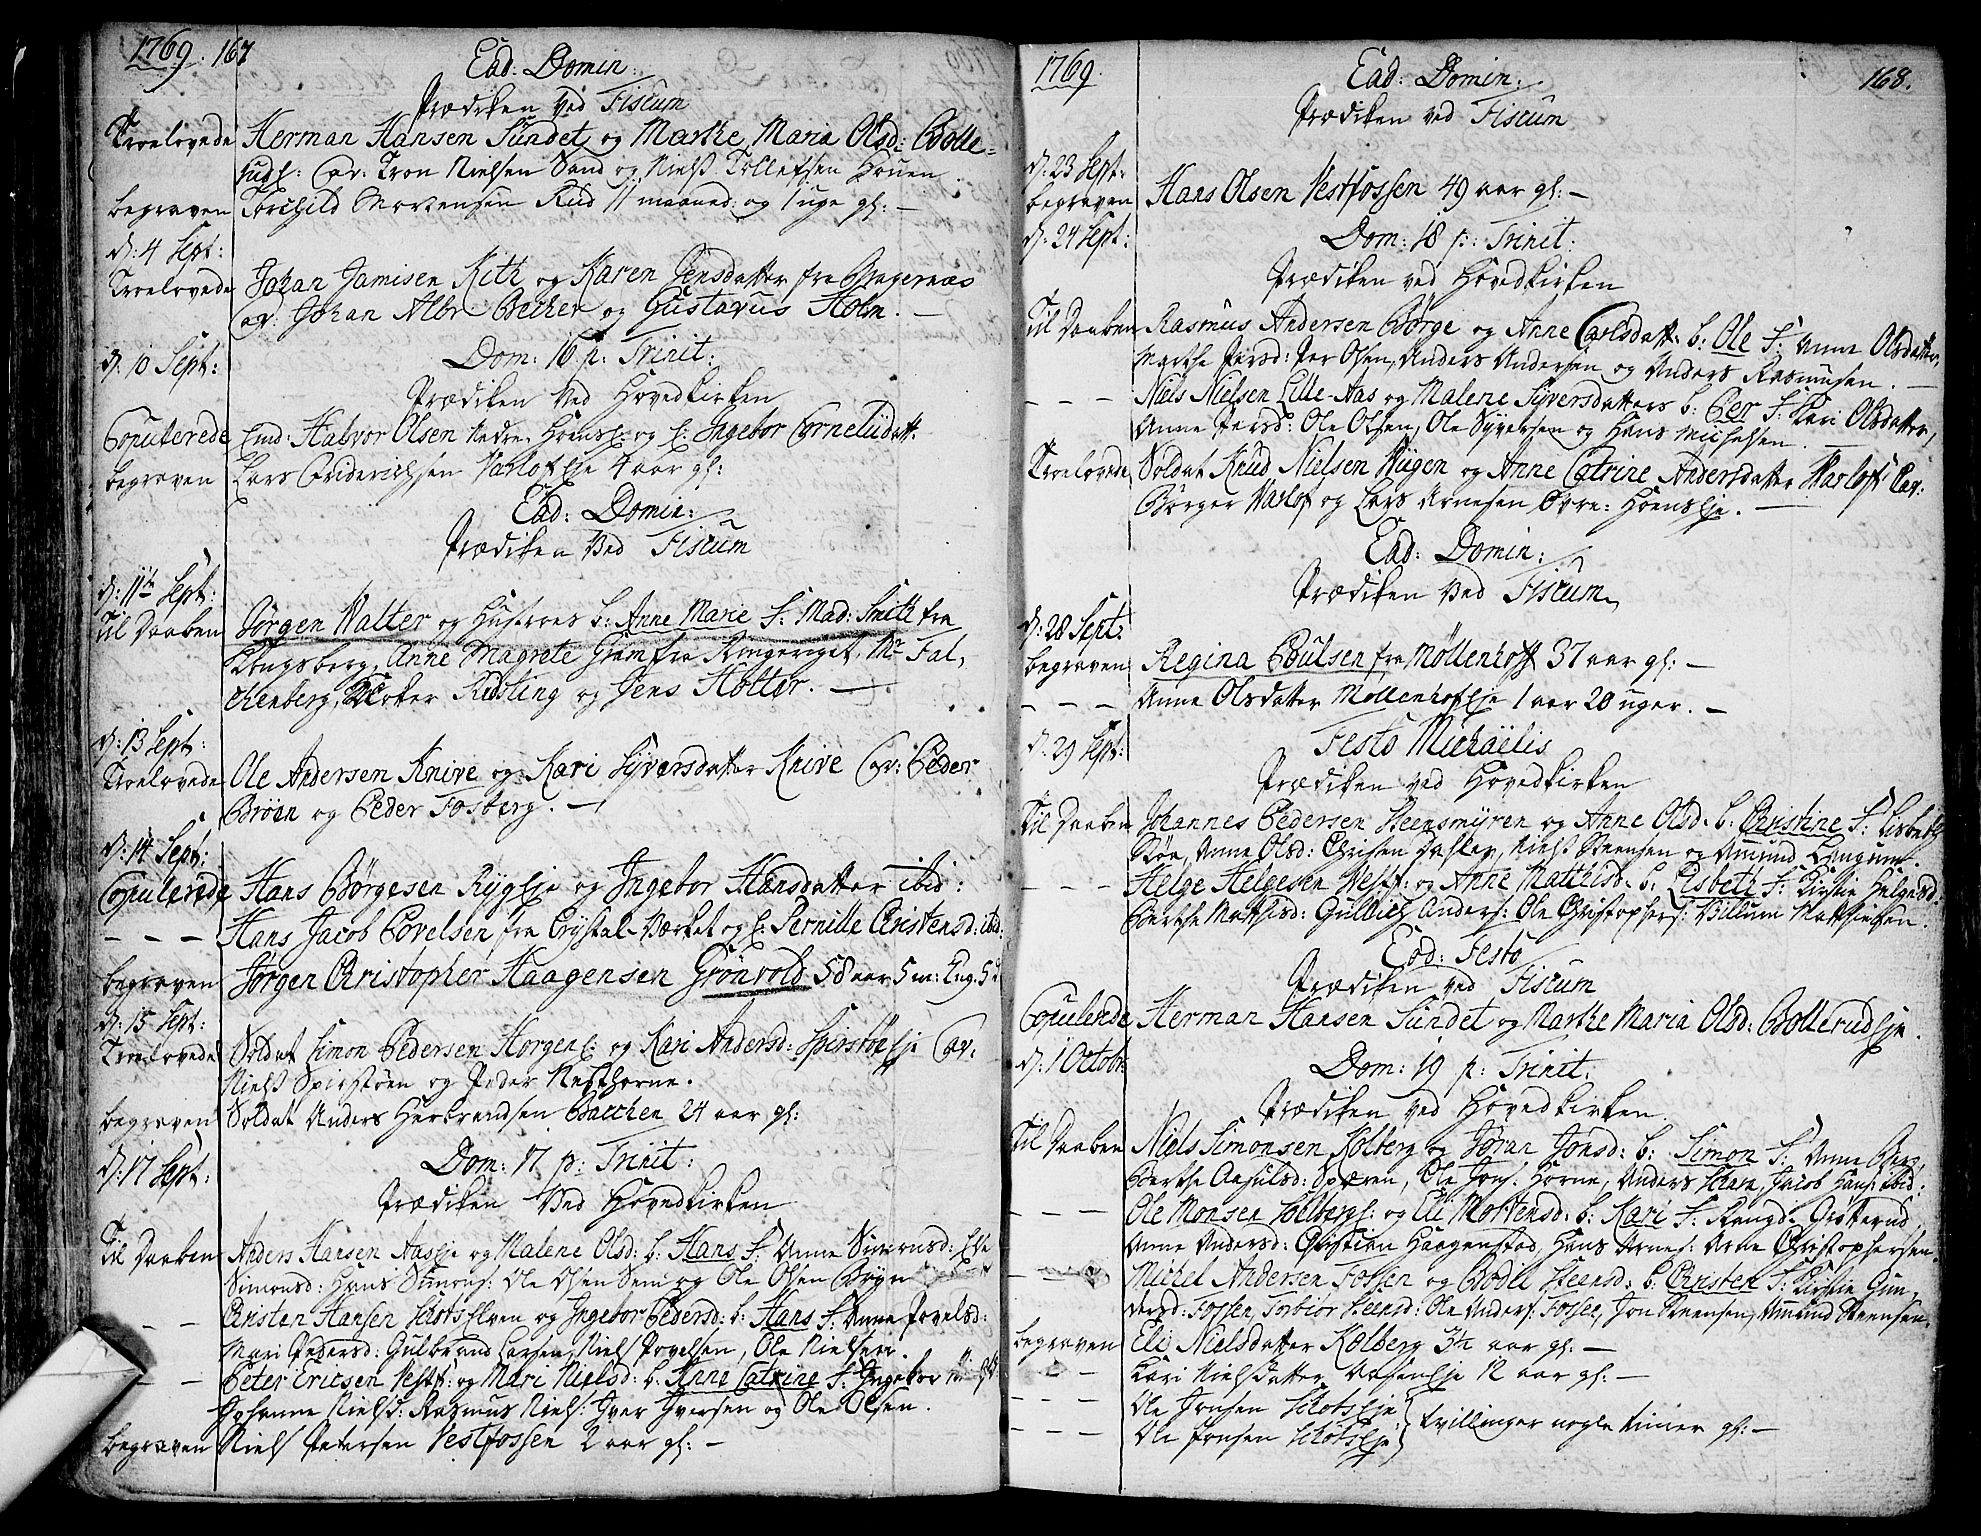 1769. 167
Ead: Domin:
Prædiken ved Fiscum
Troelovede Herman Hansen Sundet og Marthe Maria Olsd: Bolle-
rudE: Cav: Tron Nielsen Sand og Niels Tollefsen Houen.
begraven Torchild Mortensen Rud 11 maaned: og 1 uge gl: —
d: 4 Sept:
Troelovede Johan Jamisen Kith og Karen Jensdatter fra Bragernæs
Cav: Johan Albr Becker og Gustavus Holm. —
d: 10 Sept: Dom: 16 p: Trinit:
Prædiken ved Hovedkirken
Copulerede Emd: Halvor Olsen Nedre Hoens E: og E: Ingebor Corneliidatt.
begraven Lars Friderichsen Varlof Eje 4 aar gl:
Ead: Domin:
Prædiken ved Fiscum
d: 11te Sept:
Til Daaben Jørgen Walter og Hustroes b: Anne Marie F: Mad: Smith fra
Kongsberg, Anne Magrete Gram fra Ringeriget, Mr Fal-
chenberg, Klocker Kidsling og Jens Holter. —
d: 13 Sept:
Troelovede Ole Andersen Knive og Kari Syversdatter Knive Cav: Peder
Brøen og Peder Fosberg. —
d: 14 Sept:
Copulerede Hans Børgesen Ryg Eje og Ingebor Hansdatter ibid:
— — — Hans Jacob Povelsen fra Crystal-Værket og E: Pernille Christensd: ibid:
begraven Jørgen Christopher Haagensen Grönvold 58 aar 5 m: 4 ug. 5 d
d: 15 Sept:
Troelovede Soldat Simon Pedersen Horgen E: og Kari Andersd: Spirstöe Eje Cav:
Niels Spirstöen og Peder Nesthorne.
begraven Soldat Anders Herbrandsen Bacchen 24 aar gl:
d: 17 Sept: Dom: 17 p: Trinit:
Prædiken ved Hovedkirken
Til Daaben Anders Hansen Aas Eje og Malene Olsd: b: Hans F: Anne Simonsd: Else
Simonsd: Hans Simons: Ole Olsen Sem og Ole Olsen Bøyn
— — Christen Hansen Schots Elven og Ingebor Pedersd: b: Hans F: Anne Povelsd:
Mari Pedersd: Gulbrand Larsen, Niels Povelsen, Ole Nielsen.
— — Peter Ericsen Vestf: og Mari Nielsd: b: Anne Catrine F: Ingebor
Johanne Nielsd: Rasmus Niels: Iver Iversen og Ole Olsen.
begraven Niels Petersen Vestfossen 2 aar gl: —
1769. 168.
Ead: Domin:
Prædiken ved Fiscum
d: 23 Sept:
begraven Hans Olsen Vestfossen 49 aar gl: —
d: 24 Sept: Dom: 18 p: Trinit:
Prædiken ved Hovedkirken
Til Daaben Rasmus Andersen Börge og Anne Carlsdatt: b: Ole F: Anne Olsdatter,
Marthe Persd: Per Olsen, Anders Andersen og Anders Rasmusen. —
— — — Niels Nielsen Lille-Aas og Malene Syversdatters b: Per F: Kari Olsdatter,
Anne Persd: Ole Olsen, Ole Syversen og Hans Michelsen. —
Troelovede Soldat Knud Nielsen Wiigen og Anne Catrine Andersdatter Warlof: Cav:
Börger Varlof og Lars Arnesen Øvre: Hoens Eje. —
Ead: Domin:
Prædiken ved Fiscum
d: 28 Sept:
begraven Regina Poulsen fra Møllenhoff 37 aar gl: —
— — — Anne Olsdatter Møllenhof Eje 1 aar 20 uger. —
d: 29 Sept: Festo Michaëlis
Prædiken ved Hovedkirken
Til Daaben Johannes Pedersen Steensmyren og Anne Olsd: b: Christine F: Lisbeth
Böe, Anne Olsd: Christen Dahler, Niels Steensen og Amund Langum.
— — — Helge Helgesen Vestf: og Anne Matthisd: b: Lisbeth F: Kirstie Helgesd:
Berthe Matthisd: Gullich Anders: Ole Christophers: Villum Matthiesen.
Eod: Festo
Prædiken ved Fiscum
Copulerede Herman Hansen Sundet og Marthe Maria Olsd: Bollerud Eje.
d: 1 Octobr: Dom: 19 p: Trinit:
Prædiken ved Hovedkirken
Til Daaben Niels Simonsen Kolberg og Jøran Jonsd: b: Simon F: Anne
Berthe Aasulsd: Spæren, Ole Jons: Horne, Anders Schare, Jacob Hans: ibid:
— — — Ole Monsen Solberg E: og Eli Mortensd: b: Kari F: Rangd: Grötterud,
Anne Andersd: Christian Haagenstad, Hans Arnes: Arne Christophersen.
— — Michel Andersen Fossen og Bodil Steensd: b: Christen F: Kirstie Gun-
dersd: Fossen, Torbior Steensd: Ole Anders: Fossen, Jon Steensen, Amund Steensen.
begraven Eli Nielsdatter Kolberg 3½ aar gl: —
— — Kari Nielsdatter Aasen Eje 12 aar gl: —
— — — Ole Jonsen Schots Eje } tvillinger nogle timer gl: —
— — — Ole Jonsen Schots Eje